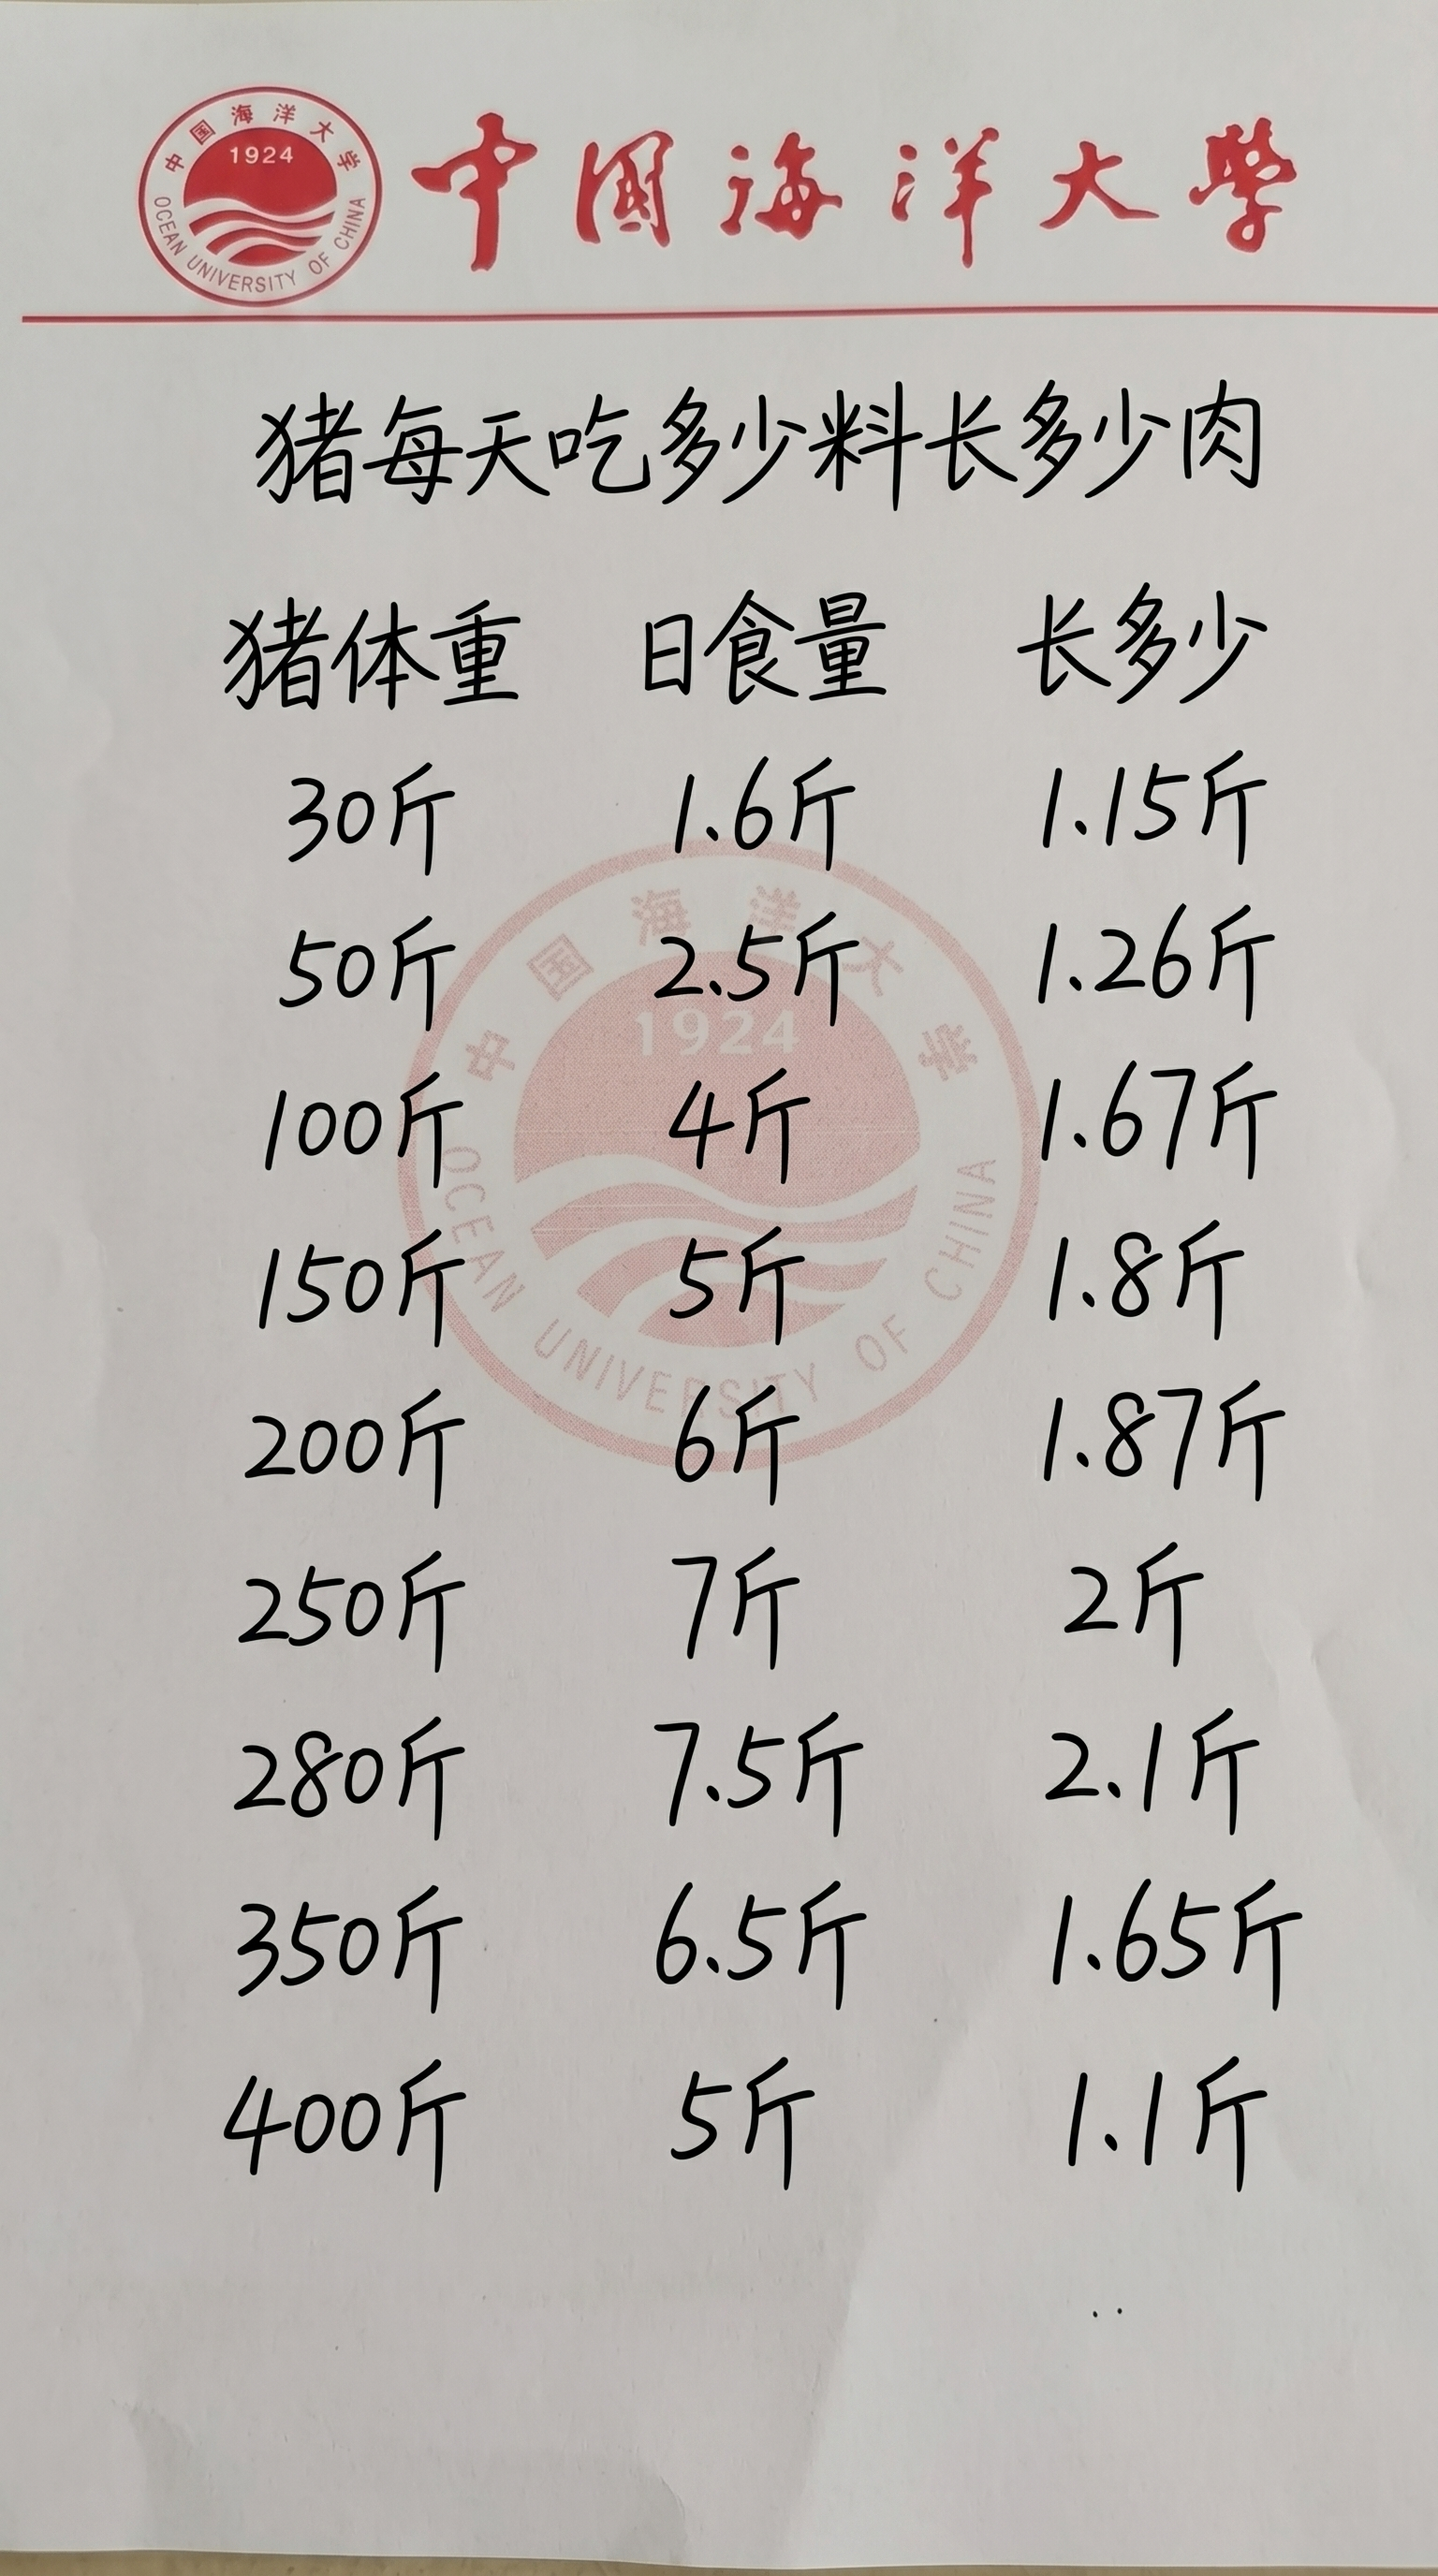 中国海洋大学
1924
OCEAN UNIVERSITY OF CHINA
中國海洋大學
猪每天吃多少料长多少肉
猪体重 日食量 长多少
30斤 1.6斤 1.15斤
50斤 2.5斤 1.26斤
100斤 4斤 1.67斤
150斤 5斤 1.8斤
200斤 6斤 1.87斤
250斤 7斤 2斤
280斤 7.5斤 2.1斤
350斤 6.5斤 1.65斤
400斤 5斤 1.1斤
中国海洋大学
1924
OCEAN UNIVERSITY OF CHINA